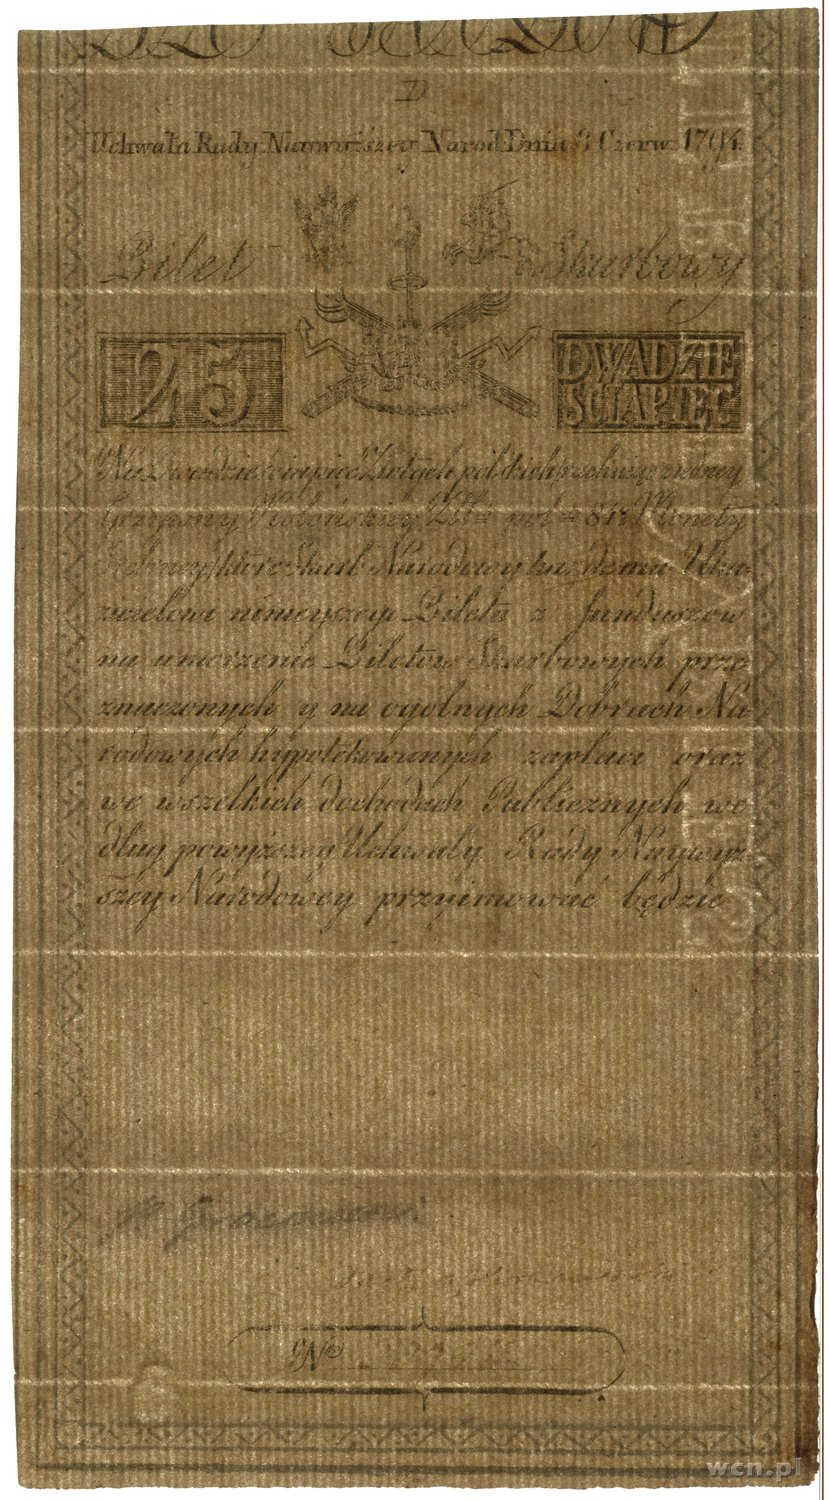 D
Uchwała Rady Naywyższey Narod. Dnia 8 Czerw. 1794.
Bilet Skarbowy
25 DWADZIE
ŚCIAPIĘC
Na Dwadzieścia pięć Złotych polskich rachuiąc z iedney
Grzywny Kolońskiey Zł. pol. 84½ Monety
Srebrney, które Skarb Narodowy każdemu Oka-
zicielowi ninieyszego Biletu z funduszów
na umorzenie Biletów Skarbowych prze-
znaczonych y na ogólnych Dobrach Na-
rodowych hypotekowanych zapłaci oraz
we wszelkich dochodach Publicznych we-
dług powyższey Uchwały Rady Naywyż-
szey Narodowey przyimować będzie
No
wcn.pl